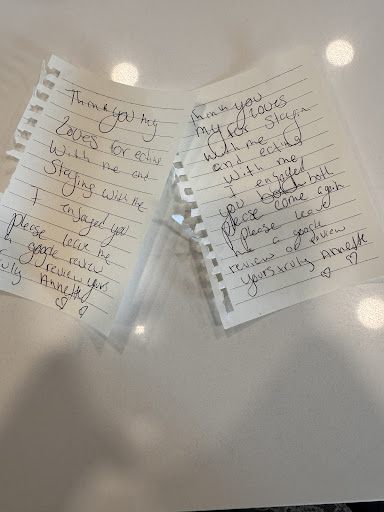 Thank you my
Loves for eating
With me and
Staying with me
I enjoyed you
please leave me
a google review
review yours
truly Annette
Thank you
my Loves
for Staying
with me
and eating
With me
I enjoyed
you both
please come again
please leave
me a google
review or review
yours truly Annette